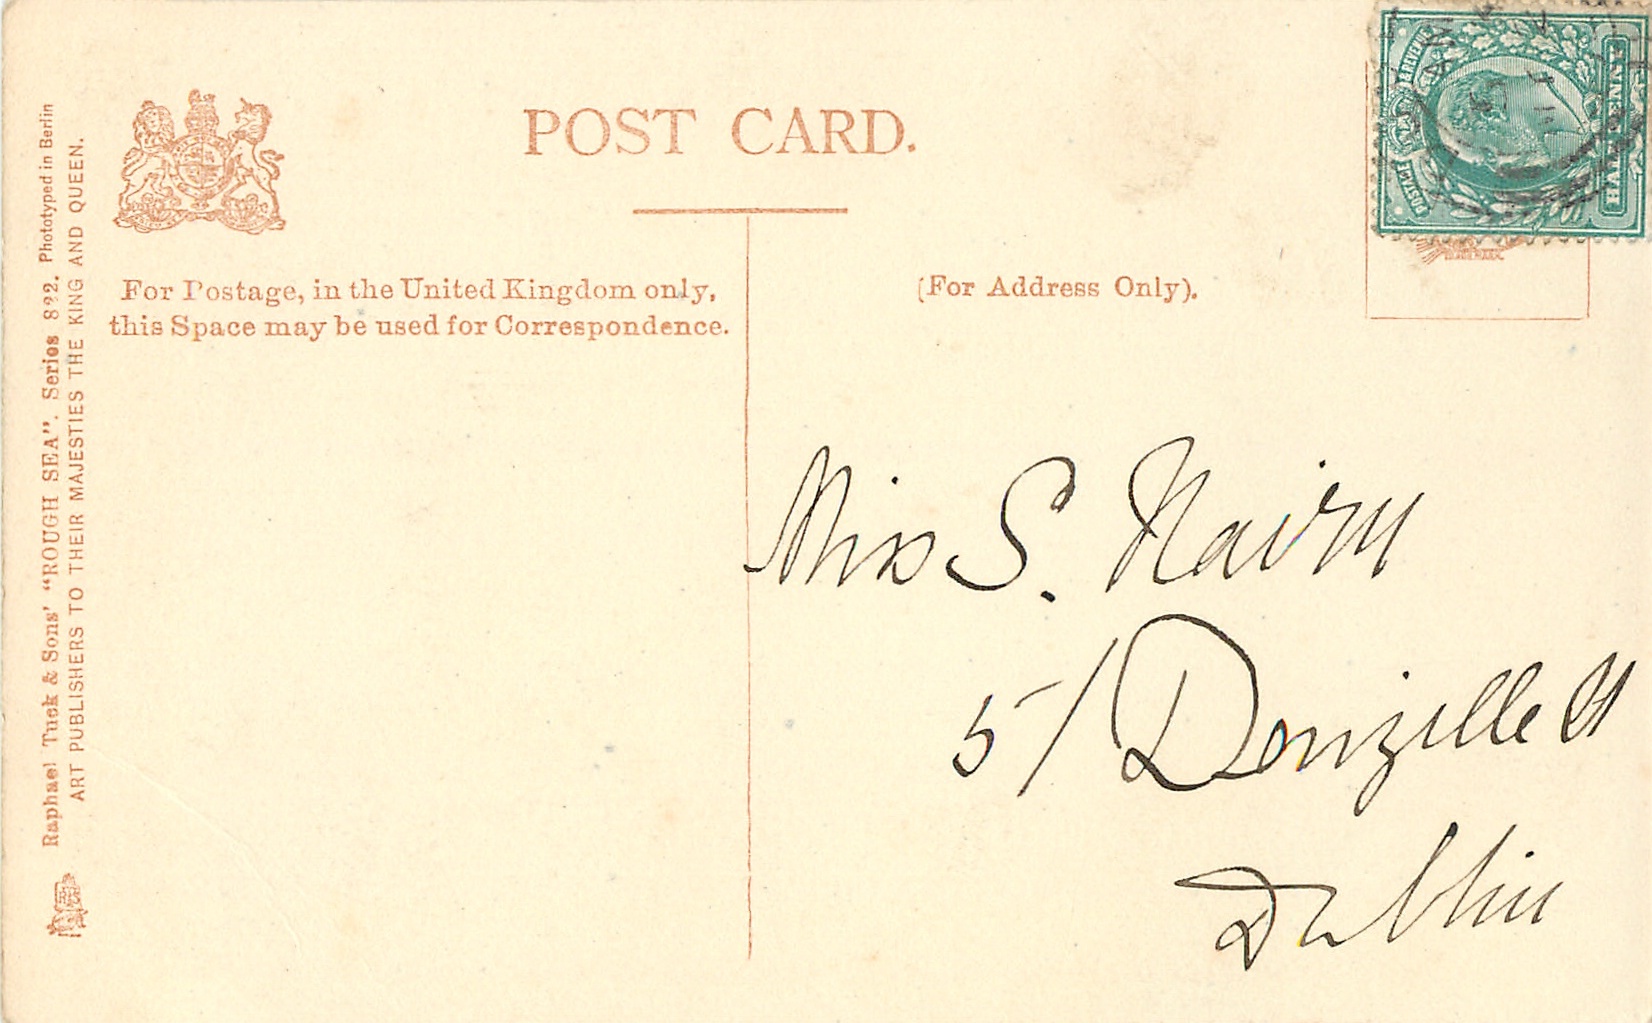 POST CARD.
For Postage, in the United Kingdom only,
this Space may be used for Correspondence.
(For Address Only).
Raphael Tuck & Sons' "ROUGH SEA". Series 822. Phototyped in Berlin
ART PUBLISHERS TO THEIR MAJESTIES THE KING AND QUEEN.
POSTAGE & REVENUE
HALFPENNY
Miss S. Nairn
5/ Denzille St
Dublin